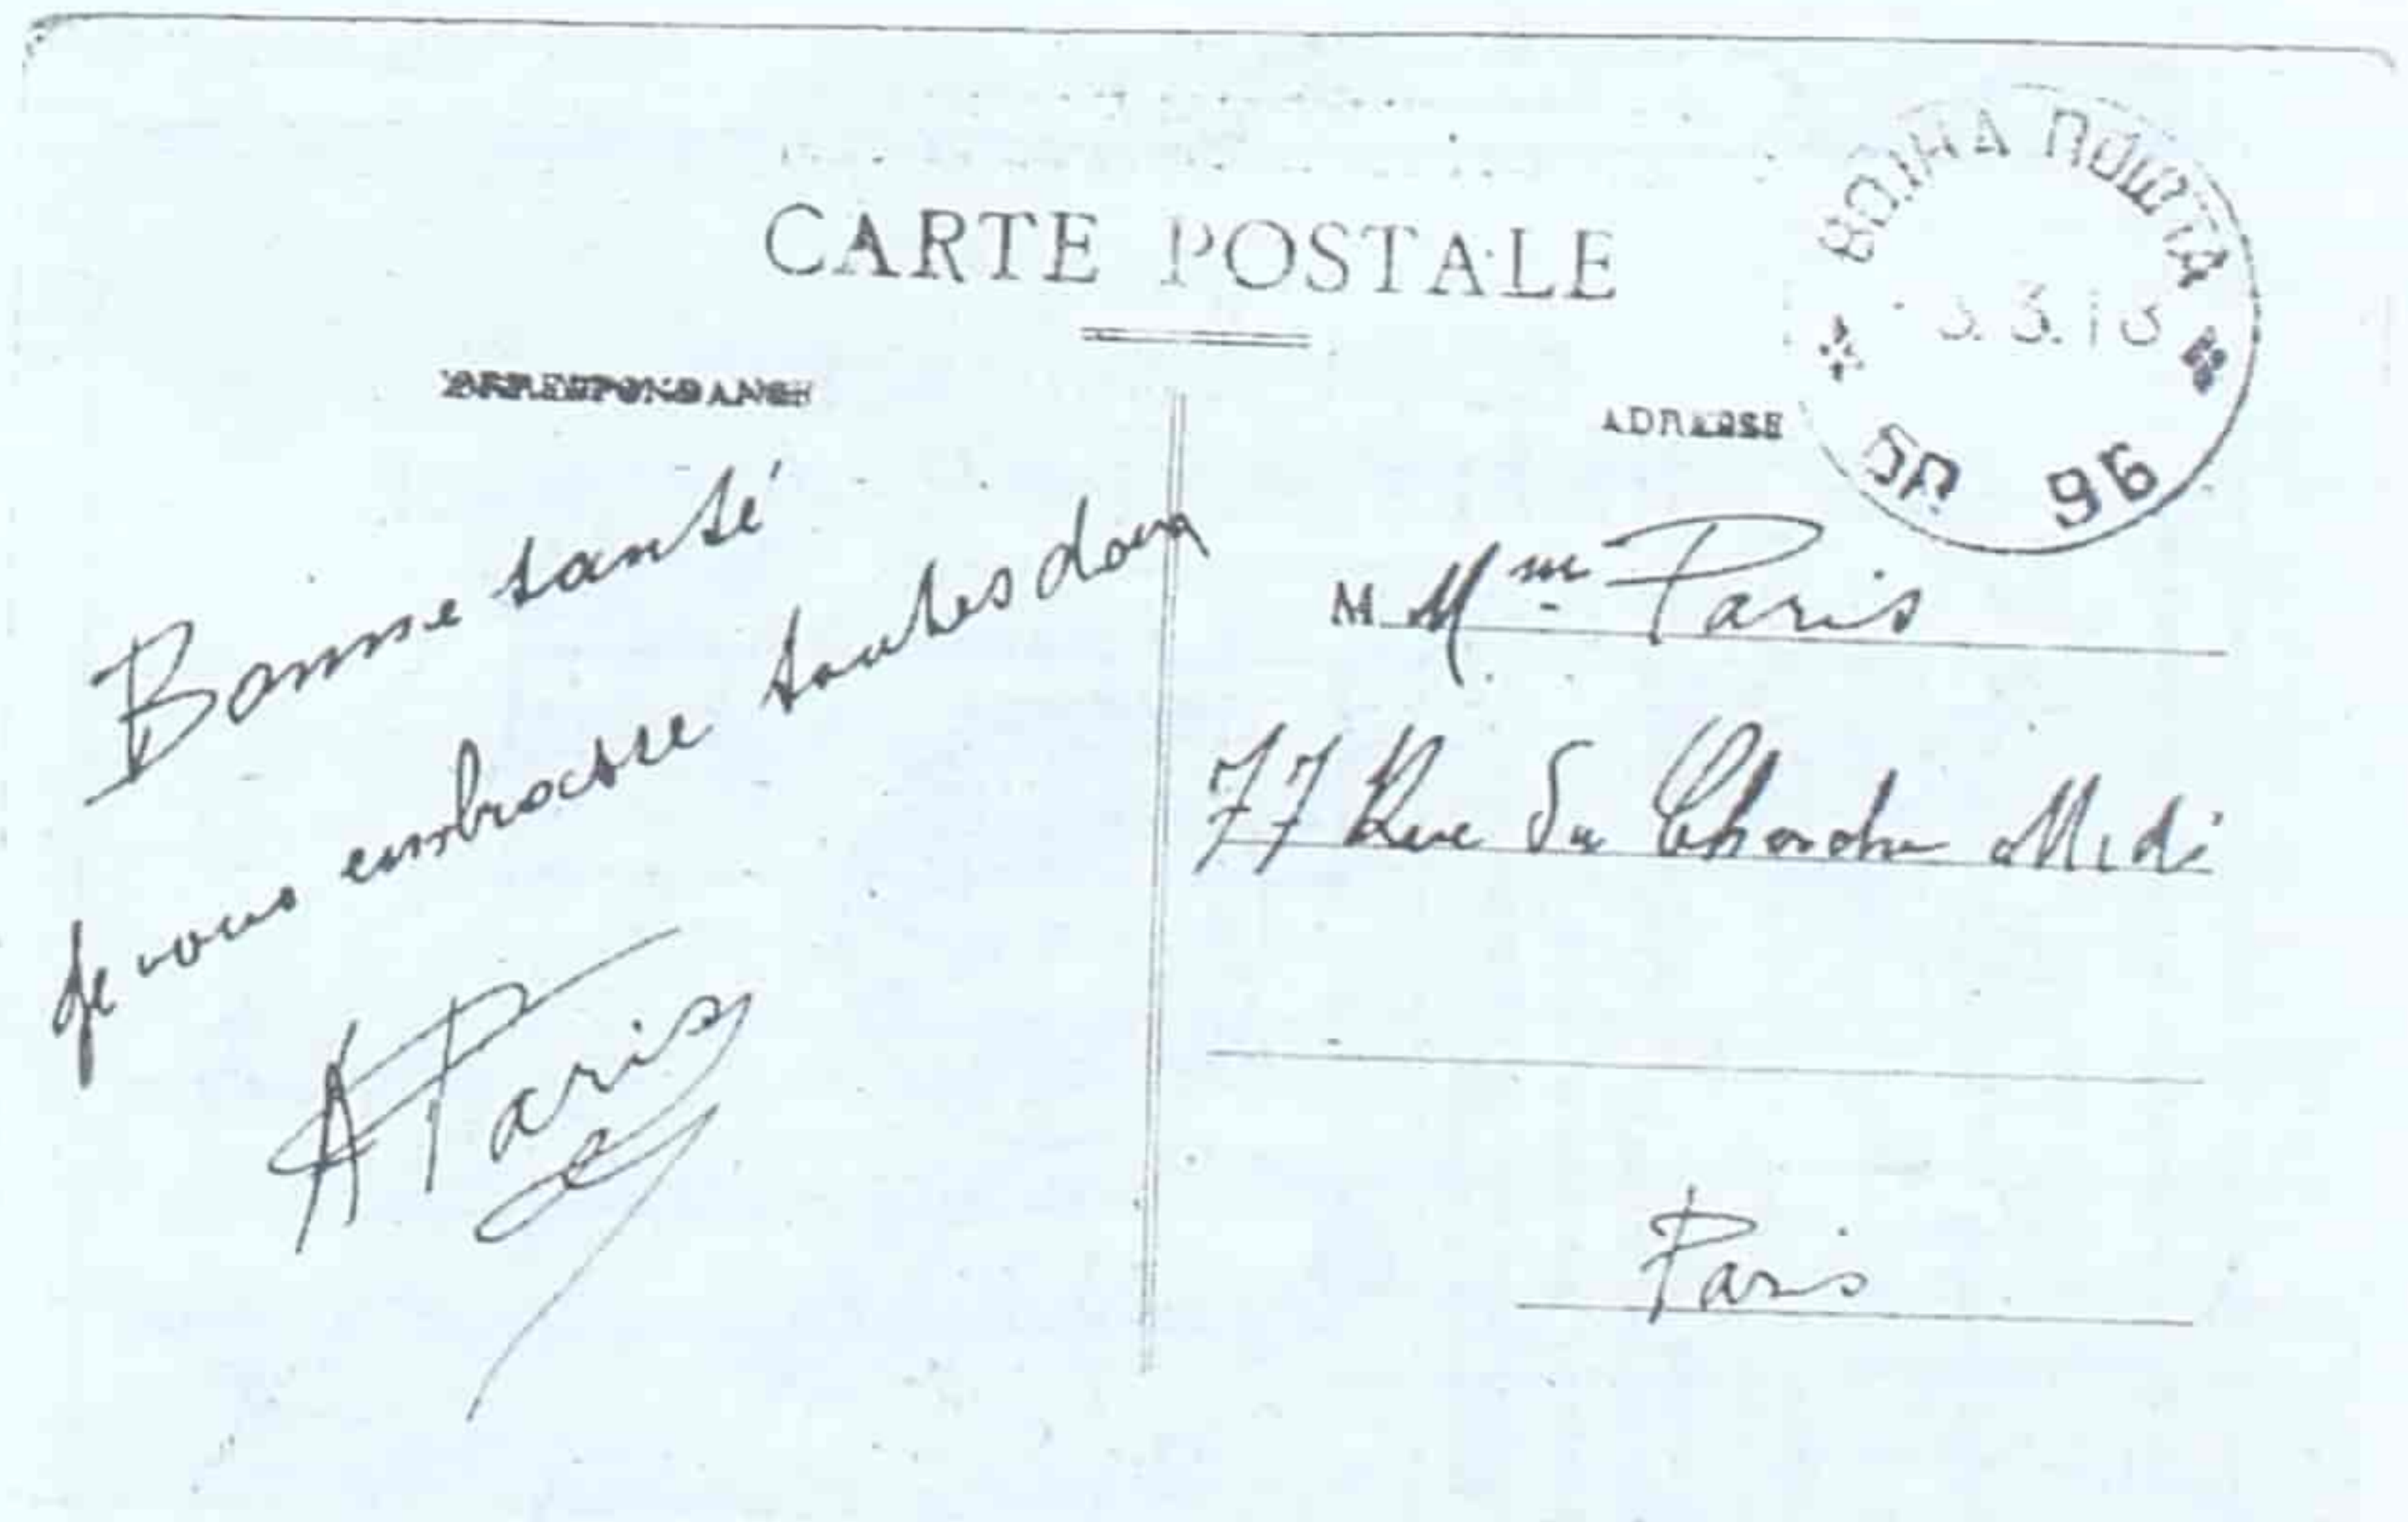 CARTE POSTALE
CORRESPONDANCE
ADRESSE
ВОЈНА ПОШТА
3.3.13
96
Bonne santé
je vous embrasse toutes
A Paris
M Mme Paris
77 Rue du Cherche Midi
Paris